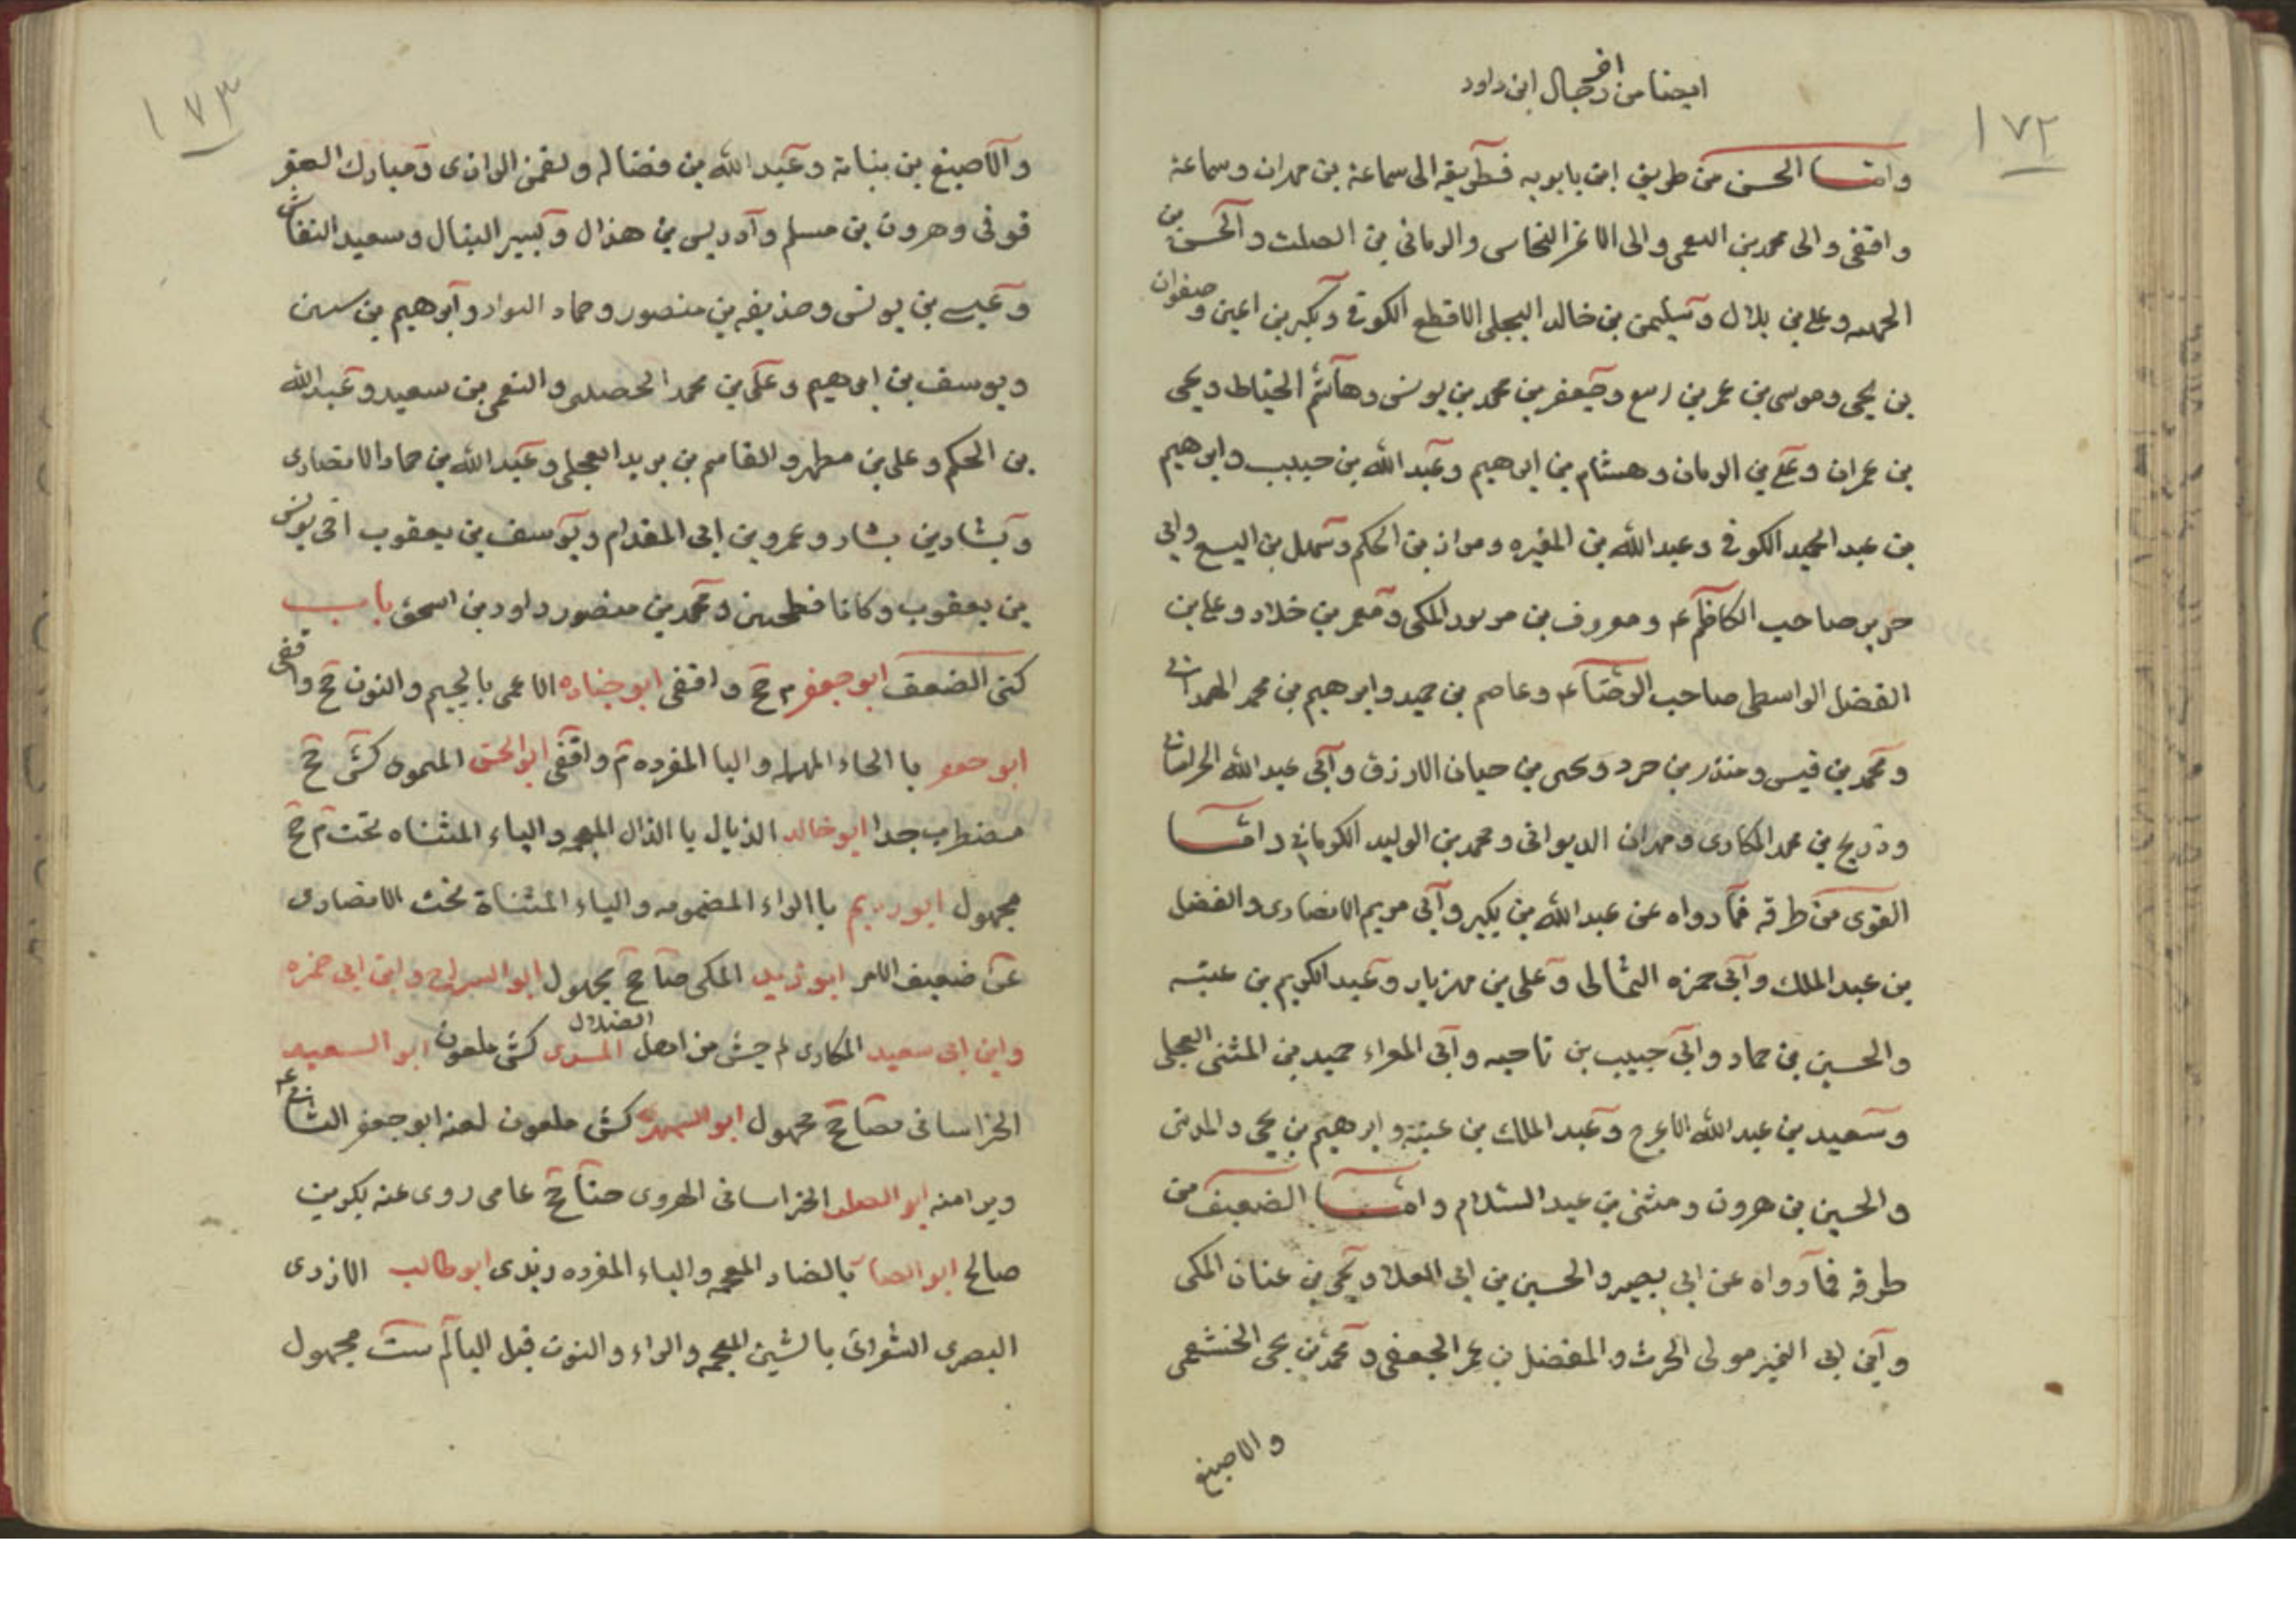 ايضا من اخر رجال ابن داود
١٧٢
واما الحسن من طريق ابن بابويه فطريقه الى سماعة بن مهران وسماعة
واقفى والى محمد بن النعمى والى الاغر النحاس والريانى بن الصلت والحسن بن
الجهم وعلى بن بلال وسليمن بن خالد البجلى الاقطع الكوفى وبكير بن اعين وصفوان
بن يحيى وموسى بن عمر بن بزيع وجعفر بن محمد بن يونس وهاشم الحناط ويحيى
بن عمران وعلى بن الريان وهشام بن ابرهيم وعبد الله بن حبيب وابرهيم
بن عبد الحميد الكوفى وعبد الله بن المغيره ومروان بن الحكم وسهل بن اليسع وابى
حرير صاحب الكاظم ع ومعروف بن خربوذ المكى ومعمر بن خلاد وعلى بن
الفضل الواسطى صاحب الرضا ع وعاصم بن حميد وابرهيم بن محمد الهمدانى
ومحمد بن قيس ومنذر بن ويحيى بن حيان الازرق وابى عبد الله الخراسانى
وذريح بن محمد المكارى وحمدان الديوانى ومحمد بن الوليد الكرمانى واما
القوى من طرقه فما رواه عن عبد الله بن بكير وابى مريم الانصارى والفضل
بن عبد الملك وابى حمزه الثمالى وعلى بن مهزيار وعبد الكريم بن عتبه
والحسين بن حماد وابى حبيب بن ناجيه وابى المعزاء حميد بن المثنى العجلى
وسعيد بن عبد الله الاعرج وعبد الملك بن عتبة وابرهيم بن يحيى والمدينى
والحسين بن هرون ومثنى بن عبد السلام واما الضعيف من
طرقه فما رواه عن ابى بصير والحسين بن ابى العلا ويحيى بن عنان المكى
وابى النمير مولى الحرث والمفضل بن عمر الجعفى ومحمد بن يحيى الخثعمى
والاصبغ
١٧٣
والاصبغ بن بنباتة وعبيد الله بن فضاله ولقمن الرازى ومبارك العقر
قوفى وهرون بن مسلم وادريس بن هذال وبسير البنال وسعيد النقاش
وعيسى بن يونس وحذيفه بن منصور وحماد النواد وابرهيم بن سفين
ويوسف بن ابرهيم وعلى بن محمد الحصلى والنعمى بن سعيد وعبد الله
بن الحكم وعلى بن مطهر والقاسم بن بريد العجلى وعبيد الله بن حماد الانصارى
وبشار بن بشار وعمرو بن ابى المقدام ويوسف بن يعقوب اخى يونس
بن يعقوب وكانا فطحيين ومحمد بن منصور داود بن اسحق باب
كنى الضعفا ابو جعفر م جخ واقفى ابو جناده الاعمى بالجيم والنون جخ واقفى
ابو با الحاء المهمله والبا المفرده م واقفى ابو الحسن كش جخ
مضطرب جدا ابو خالد الذيال با الذال المعجمه والياء المثناه تحت م جخ
مجهول ابو ربيم با الراء المضمومه والياء المثناة تحت الانصارى
غض ضعيف الامر ابو زيد المكى ضا جخ مجهول ابو السراج وابن ابى حمزه
وابن ابى سعيد المكارى لم جش من اهل الضلال السرى كش ملعون ابو السعيد
الخراسانى ضا جخ مجهول ابو السمهرى كش ملعون لعنه ابو جعفر الثانى ع
وبرا منه ابو الصلت الخراسانى الهروى ضا جخ عامى روى عنه بكر بن
صالح ابو الضبا بالضاد المعجمه والباء المفرده زيدى ابو طالب الازدى
البصرى الشعرانى بالشين المعجمه والراء والنون قبل اليا لم ست مجهول